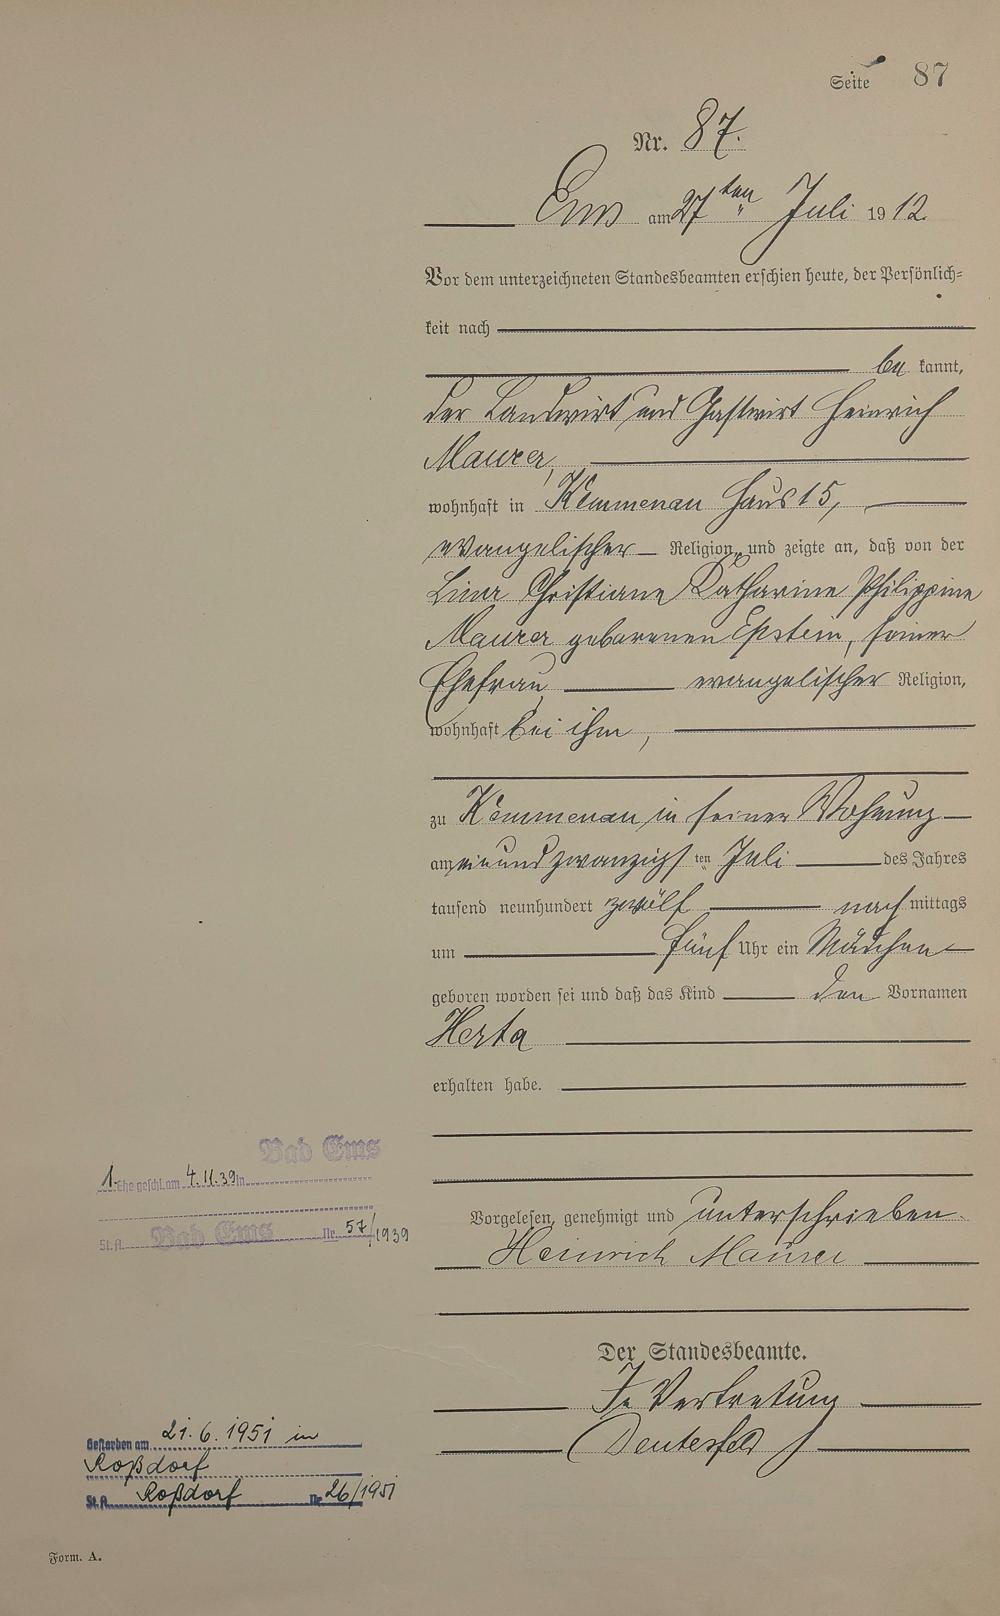 Seite 87
Nr. 87.
Ems am 27ten Juli 1912.
Vor dem unterzeichneten Standesbeamten erschien heute, der Persönlich=
keit nach
be kannt,
der Landwirt und Gastwirt Heinrich
Maurer,
wohnhaft in Kemmenau Haus 15,
evangelischer Religion, und zeigte an, daß von der
Lina Christiane Katharine Philippine
Maurer geborenen Epstein, seiner
Ehefrau evangelischer Religion,
wohnhaft bei ihm,
zu Kemmenau in seiner Wohnung
am einundzwanzigsten Juli des Jahres
tausend neunhundert zwölf nach mittags
um fünf Uhr ein Mädchen
geboren worden sei und daß das Kind den Vornamen
Herta
erhalten habe.
Vorgelesen, genehmigt und unterschrieben.
Heinrich Maurer
Der Standesbeamte.
In Vertretung
1. Ehe geschl. am 4.11.39 in Bad Ems
St. A. Bad Ems Nr. 57/1939
Gestorben am 21.6.1951 in
Roßdorf
St. A. Roßdorf Nr. 26/1951
Form. A.